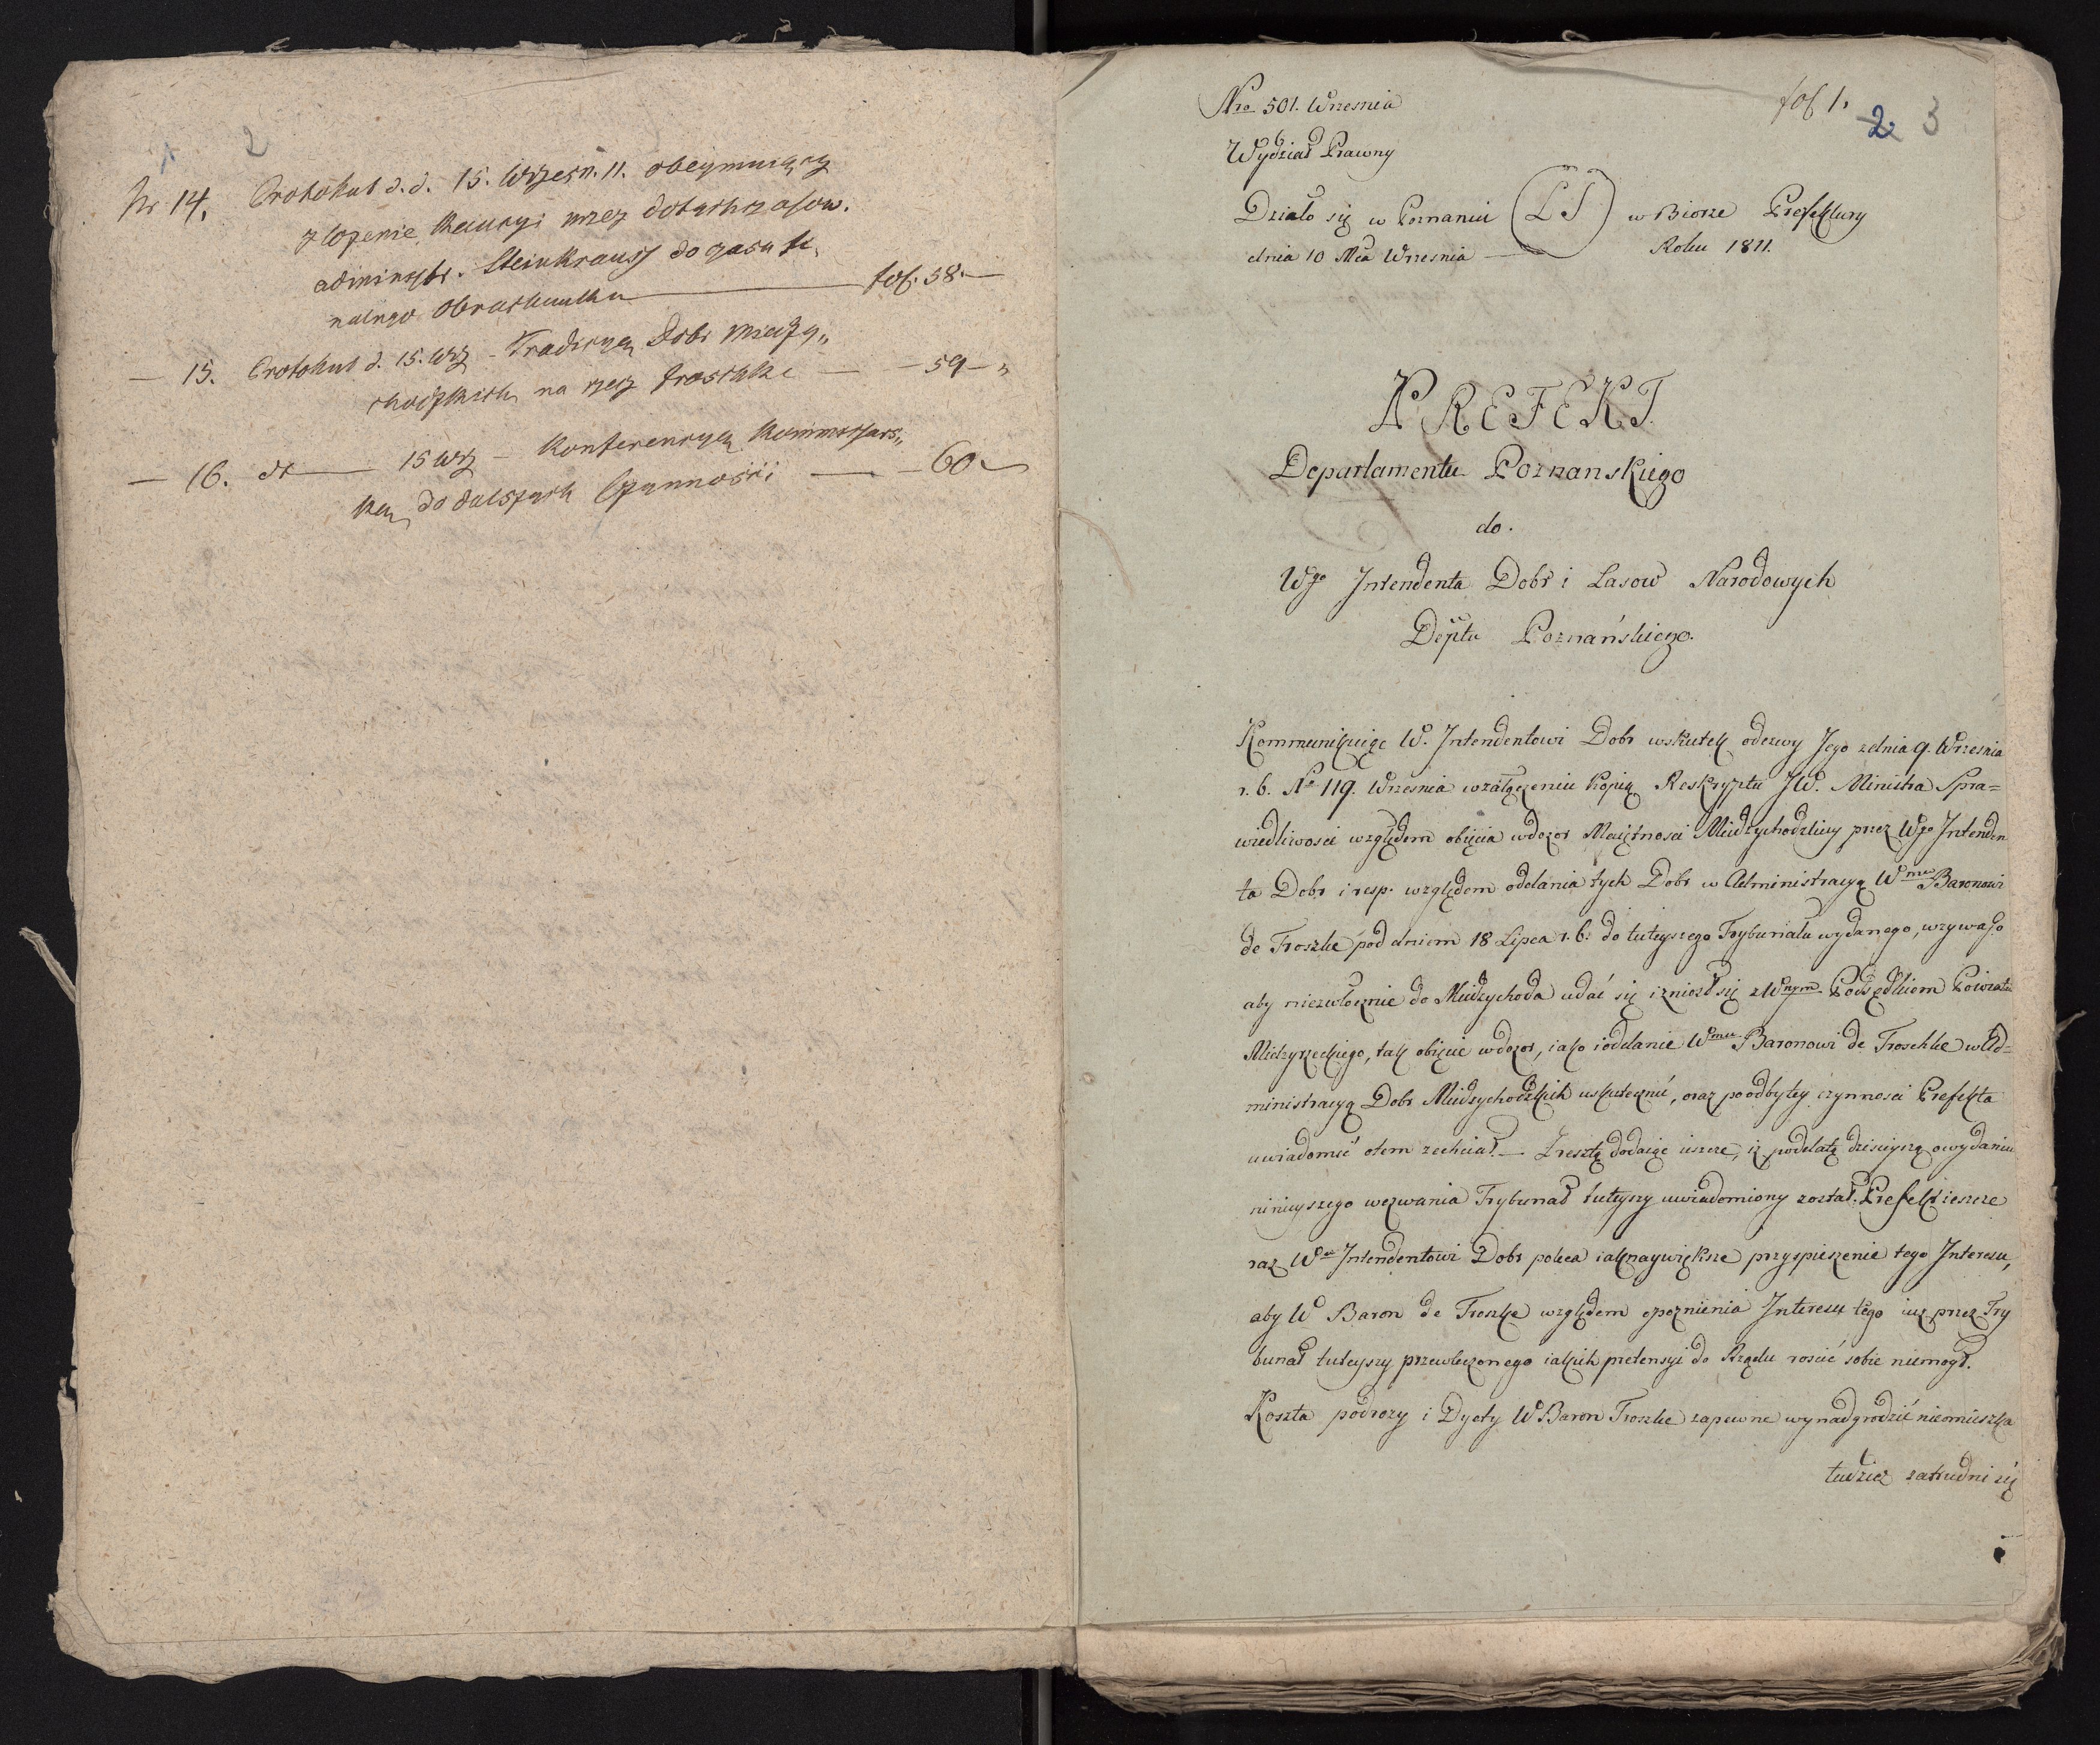 2
Nr 14. Protokuł d.d. 15. Wrzesn. 11. obeymuiący
złożenie Kaucyi przez dotychczasow.
administr. Steinkrausz do czasu fi„
nalnego Obrachunku fol. 58.
— 15. Protokuł d. 15. Wrz – Tradycyą Dobr Między„
chodzkich na rzecz Troschke — 59 — „
— 16. dt — 15 Wrz – Konferencyą Kommissars„
ką do dalszych Czynnosci — 60
Nro 501. Wrzesnia
fol 1.
2. 3
Wydział Prawny
Działo się w Poznaniu (LS) w Biorze Prefektury
dnia 10 Mca Wrzesnia — Roku 1811.
PREFEKT
Departamentu Poznanskiego
do.
Wgo Intendenta Dobr i Lasow Narodowych
Deptu Poznańskiego.
Kommunikuiąc W. Intendentowi Dobr wskutek odezwy Jego zdnia 9. Wrzesnia
r. b. No 119. Wrzesnia wzałączeniu kopią Reskryptu JW. Ministra Spra=
wiedliwosci względem obięcia wdozor Maiętnosci Międzychodzkiey przez Wgo Intenden
ta Dobr i resp. względem oddania tych Dobr w Administracyą Wmu Baronowi
de Troszke pod dniem 18 Lipca r. b. do tuteyszego Trybunału wydanego, wzywa go
aby niezwłocznie do Międzychoda udać się i zniosł się z Wnym Podsędkiem Powiatu
Międzyrzeckiego, tak obięcie wdozor, iako i oddanie Wmu Baronowi de Troschke w Ad=
ministracyą Dobr Międzychodzkich uskutecznić, oraz po odbytey czynnosci Prefekta
uwiadomić otem zechciał. — Zresztą dodaiąc ieszcze, iż pod datą dzisieyszą o wydaniu
ninieyszego wezwania Trybunał tuteyszy uwiadomiony został. Prefekt ieszcze
raz Wu Intendentowi Dobr poleca iaknaywiększe przyspieszenie tego Interesu,
aby W Baron de Troszke względem opoznienia Interesu tego iuż przez Try
bunał tuteyszy przewleczonego iakich pretensyi do Rządu roscić sobie niemogł.
Koszta podrozy i Dyety W Baron Troszke zapewne wynadgrodzić niemieszka
tudzież zatrudni się